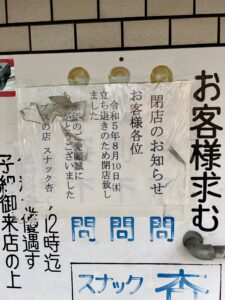 お客様求む
閉店のお知らせ
お客様各位
令和5年8月10日㈭
立ち退きのため閉店致し
ました
のご愛顧誠に
ございました
の店 スナック杏
12時迄
優遇す
予約御来店の上
問 問 問
スナック 杏